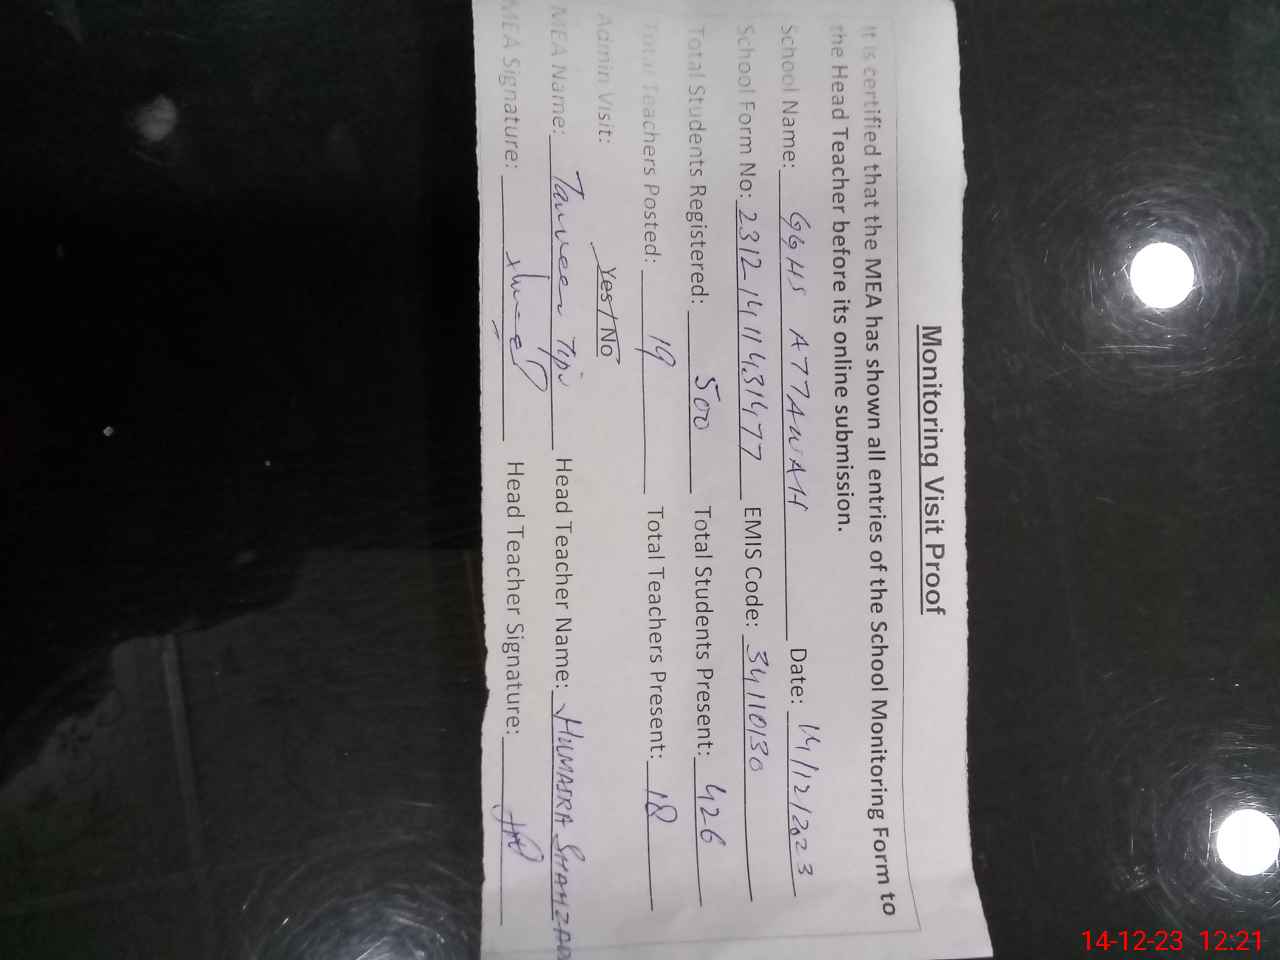 Monitoring Visit Proof
It is certified that the MEA has shown all entries of the School Monitoring Form to
the Head Teacher before its online submission.
School Name: GGHS ATTAWAH Date: 14/12/2023
School Form No: 2312-1411431477 EMIS Code: 34110130
Total Students Registered: 500 Total Students Present: 426
Total Teachers Posted: 19 Total Teachers Present: 18
Admin Visit: Yes/No
MEA Name: Tanveer Head Teacher Name: HUMAIRA SHAHZAD
MEA Signature: Head Teacher Signature:
14-12-23 12:21